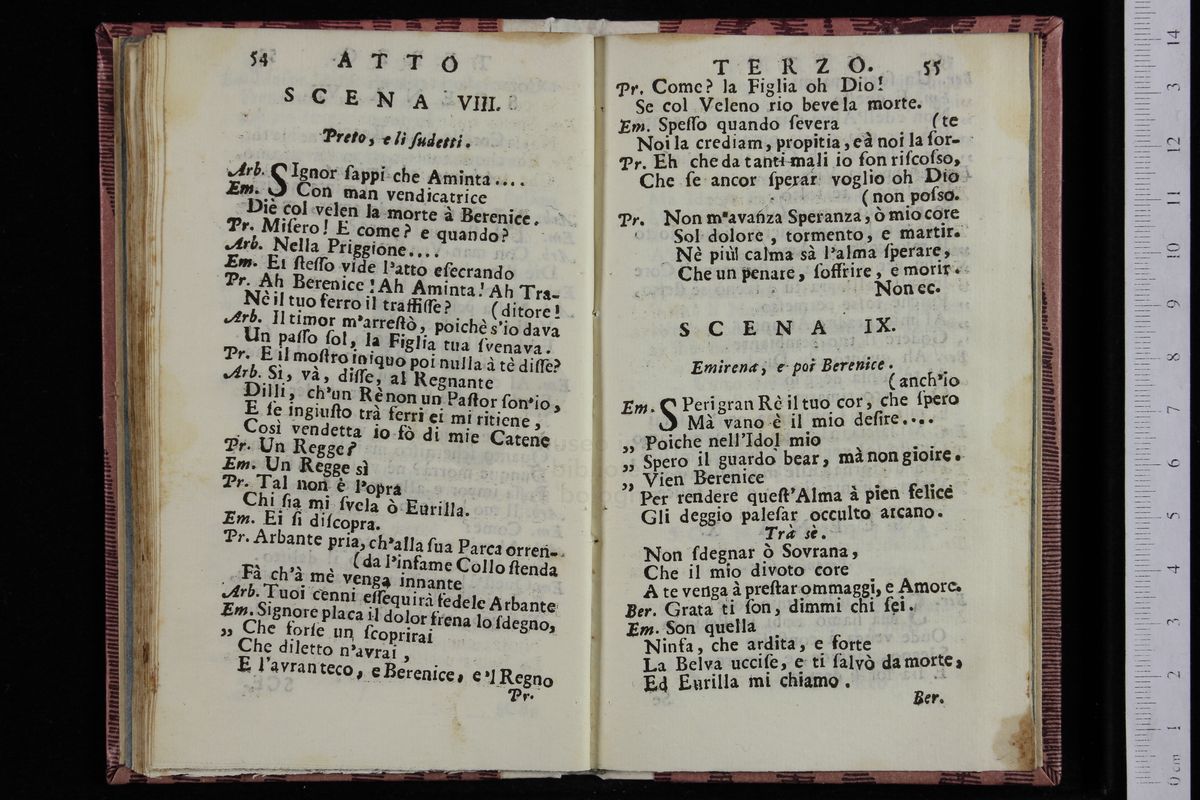 54 ATTO
SCENA VIII.
Preto, e li ſudetti.
Arb. SIgnor ſappi che Aminta....
Em. Con man vendicatrice
Diè col velen la morte à Berenice.
Pr. Miſero! E come? e quando?
Arb. Nella Priggione....
Em. Ei ſteſſo vide l'atto eſecrando
Pr. Ah Berenice! Ah Aminta! Ah Tra-
Nè il tuo ferro il traffiſſe? (ditore!
Arb. Il timor m'arreſtò, poichè s'io dava
Un paſſo ſol, la Figlia tua ſvenava.
Pr. E il moſtro iniquo poi nulla à tè diſſe?
Arb. Sì, và, diſſe, al Regnante
Dilli, ch'un Rè non un Paſtor ſon'io,
E ſe ingiuſto trà ferri ei mi ritiene,
Così vendetta io fò di mie Catene
Pr. Un Regge?
Em. Un Regge sì
Pr. Tal non è l'opra
Chi ſia mi ſvela ò Eurilla.
Em. Ei ſi diſcopra.
Pr. Arbante pria, ch'alla ſua Parca orren-
(da l'infame Collo ſtenda
Fà ch'à mè venga innante
Arb. Tuoi cenni eſſequirà fedele Arbante
Em. Signore placa il dolor frena lo ſdegno,
„ Che forſe un ſcoprirai
Che diletto n'avrai,
E l'avran teco, e Berenice, e'l Regno
Pr.
TERZO. 55
Pr. Come? la Figlia oh Dio!
Se col Veleno rio beve la morte.
Em. Speſſo quando ſevera (te
Noi la crediam, propitia, e à noi la ſor-
Pr. Eh che da tanti mali io ſon riſcoſſo,
Che ſe ancor ſperar voglio oh Dio
(non poſſo.
Pr. Non m'avanza Speranza, ò mio core
Sol dolore, tormento, e martir.
Nè più calma sà l'alma ſperare,
Che un penare, ſoffrire, e morir.
Non ec.
SCENA IX.
Emirena, e poi Berenice.
(anch'io
Em. SPeri gran Rè il tuo cor, che ſpero
Mà vano è il mio deſire....
„ Poiche nell'Idol mio
„ Spero il guardo bear, mà non gioire.
„ Vien Berenice
Per rendere queſt'Alma à pien felice
Gli deggio paleſar occulto arcano.
Trà sè.
Non ſdegnar ò Sovrana,
Che il mio divoto core
A te venga à preſtar ommaggi, e Amore.
Ber. Grata ti ſon, dimmi chi ſei.
Em. Son quella
Ninfa, che ardita, e forte
La Belva ucciſe, e ti ſalvò da morte,
Ed Eurilla mi chiamo.
Ber.
0 cm 1 2 3 4 5 6 7 8 9 10 11 12 3 14